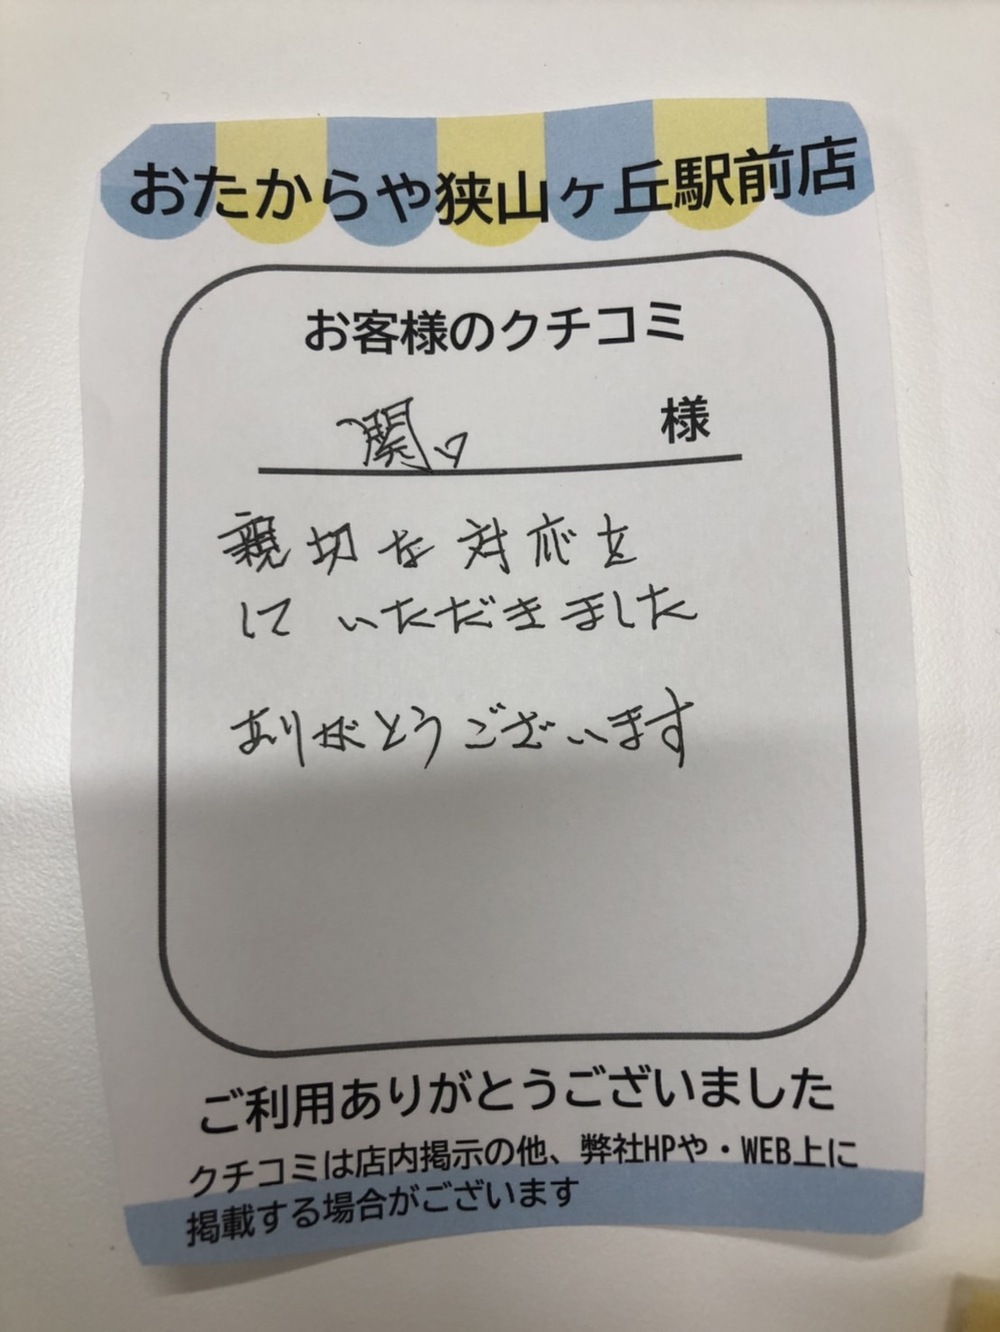 おたからや狭山ヶ丘駅前店
お客様のクチコミ
関口 様
親切な対応を
して いただきました
ありがとうございます
ご利用ありがとうございました
クチコミは店内掲示の他、弊社HPや・WEB上に
掲載する場合がございます